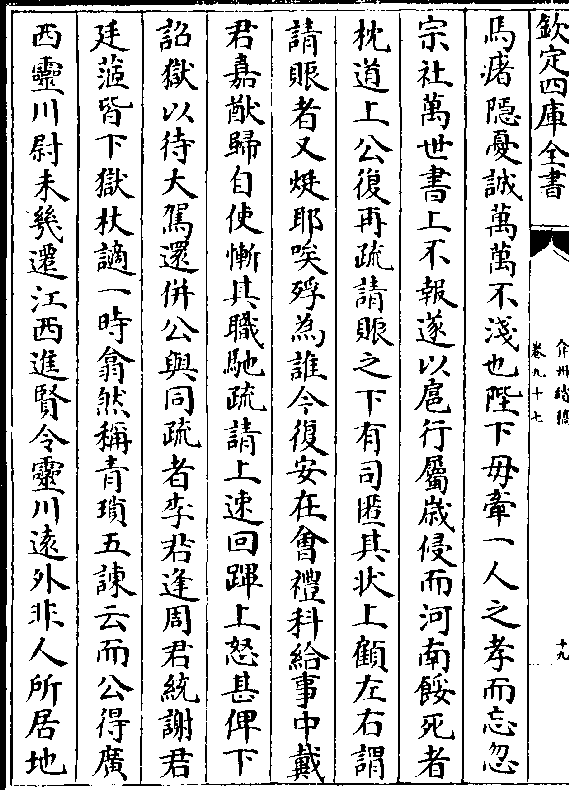 欽定四庫全書
弇州續稿
卷九十七
十九
馬瘏隱憂誠萬萬不淺也陛下毋牽一人之孝而忘忽
宗社萬世書上不報遂以扈行屬歲侵而河南餒死者
枕道上公復再疏請賑之下有司匿其状上顧左右謂
請賑者又煆耶唉殍為誰今復安在㑹禮科給事中戴
君嘉猷歸自使慚其職馳疏請上速回蹕上怒甚俾下
詔獄以待大駕還併公與同疏者李君逢周君統謝君
廷蒞皆下獄杖謫一時翕然稱青瑣五諫云而公得廣
西靈川尉未幾遷江西進賢令靈川逺外非人所居地